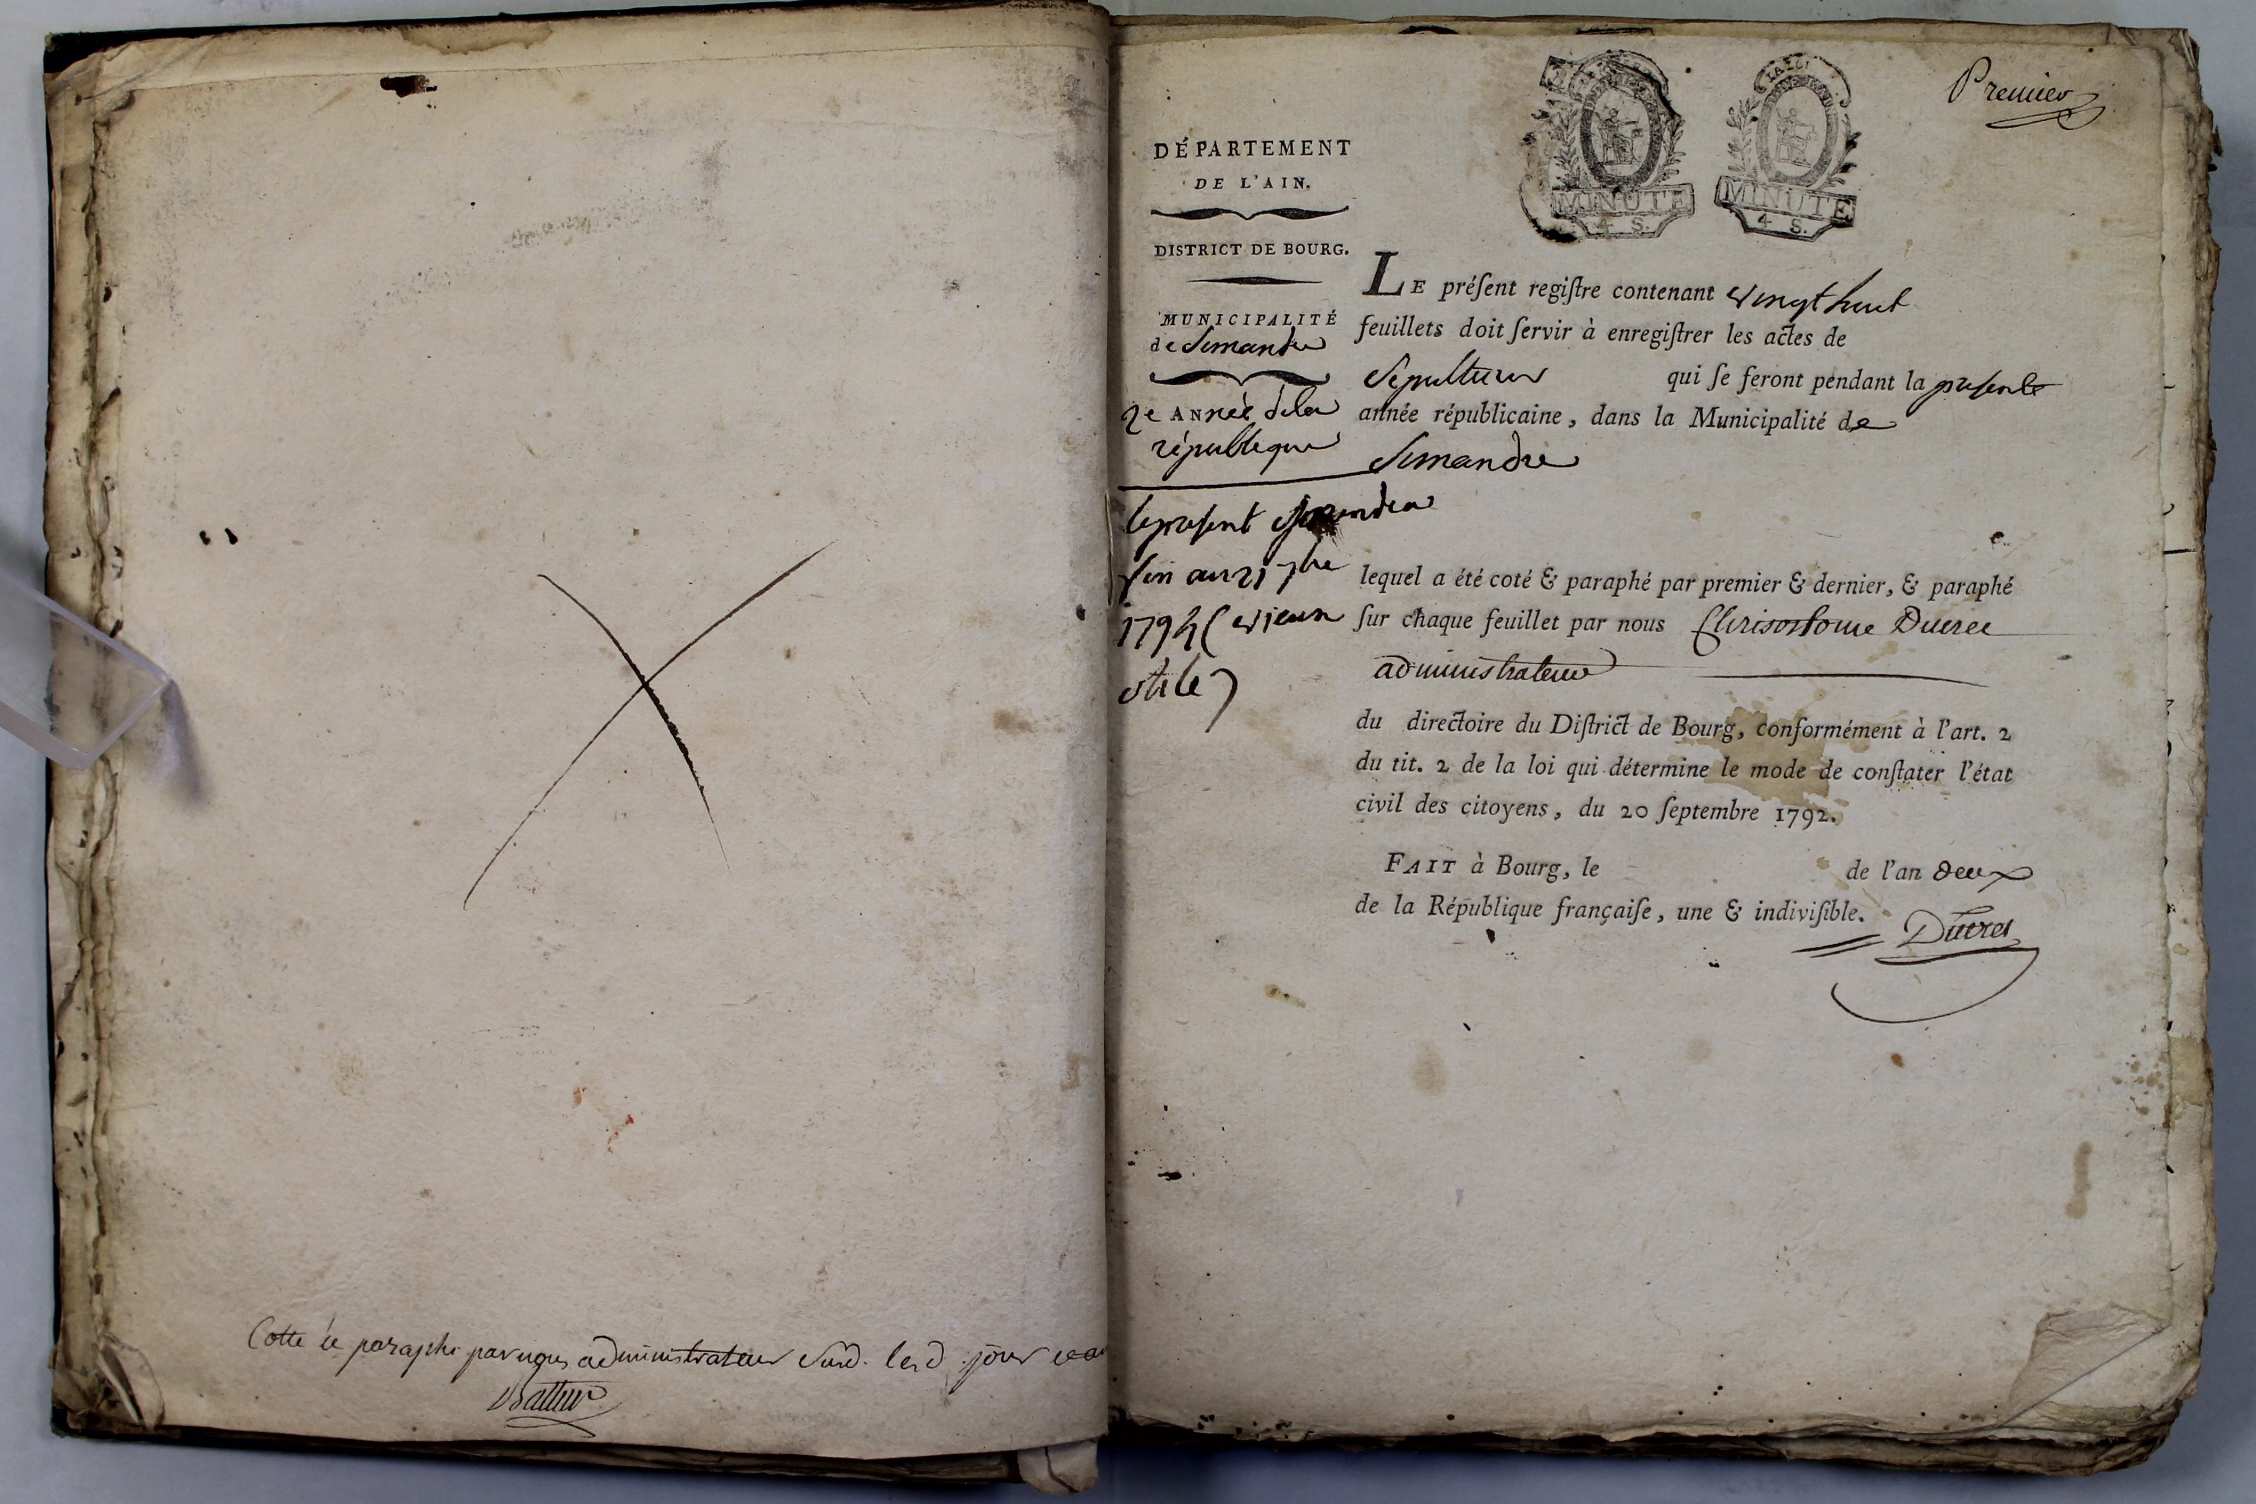 Cotte et paraphé par nous administrateur susd. lesd. jour et an
Premier
LA LOI
MINUTE
4 S.
MINUTE
4 S.
DÉPARTEMENT
DE L'AIN.
DISTRICT DE BOURG.
MUNICIPALITÉ
de Simandre
2e ANnée de la
république
le present prendra
fin au 21 7bre
1794 (vieux
stile)
LE préſent regiſtre contenant vingt huit
feuillets doit ſervir à enregiſtrer les actes de
Sepultures qui ſe feront pendant la presente
année républicaine, dans la Municipalité de
Simandre
lequel a été coté & paraphé par premier & dernier, & paraphé
ſur chaque feuillet par nous Chrisostome Ducret
administrateur
du directoire du Diſtrict de Bourg, conformément à l'art. 2
du tit. 2 de la loi qui détermine le mode de conſtater l'état
civil des citoyens, du 20 ſeptembre 1792.
FAIT à Bourg, le de l'an deux
de la République françaiſe, une & indiviſible.
Ducret